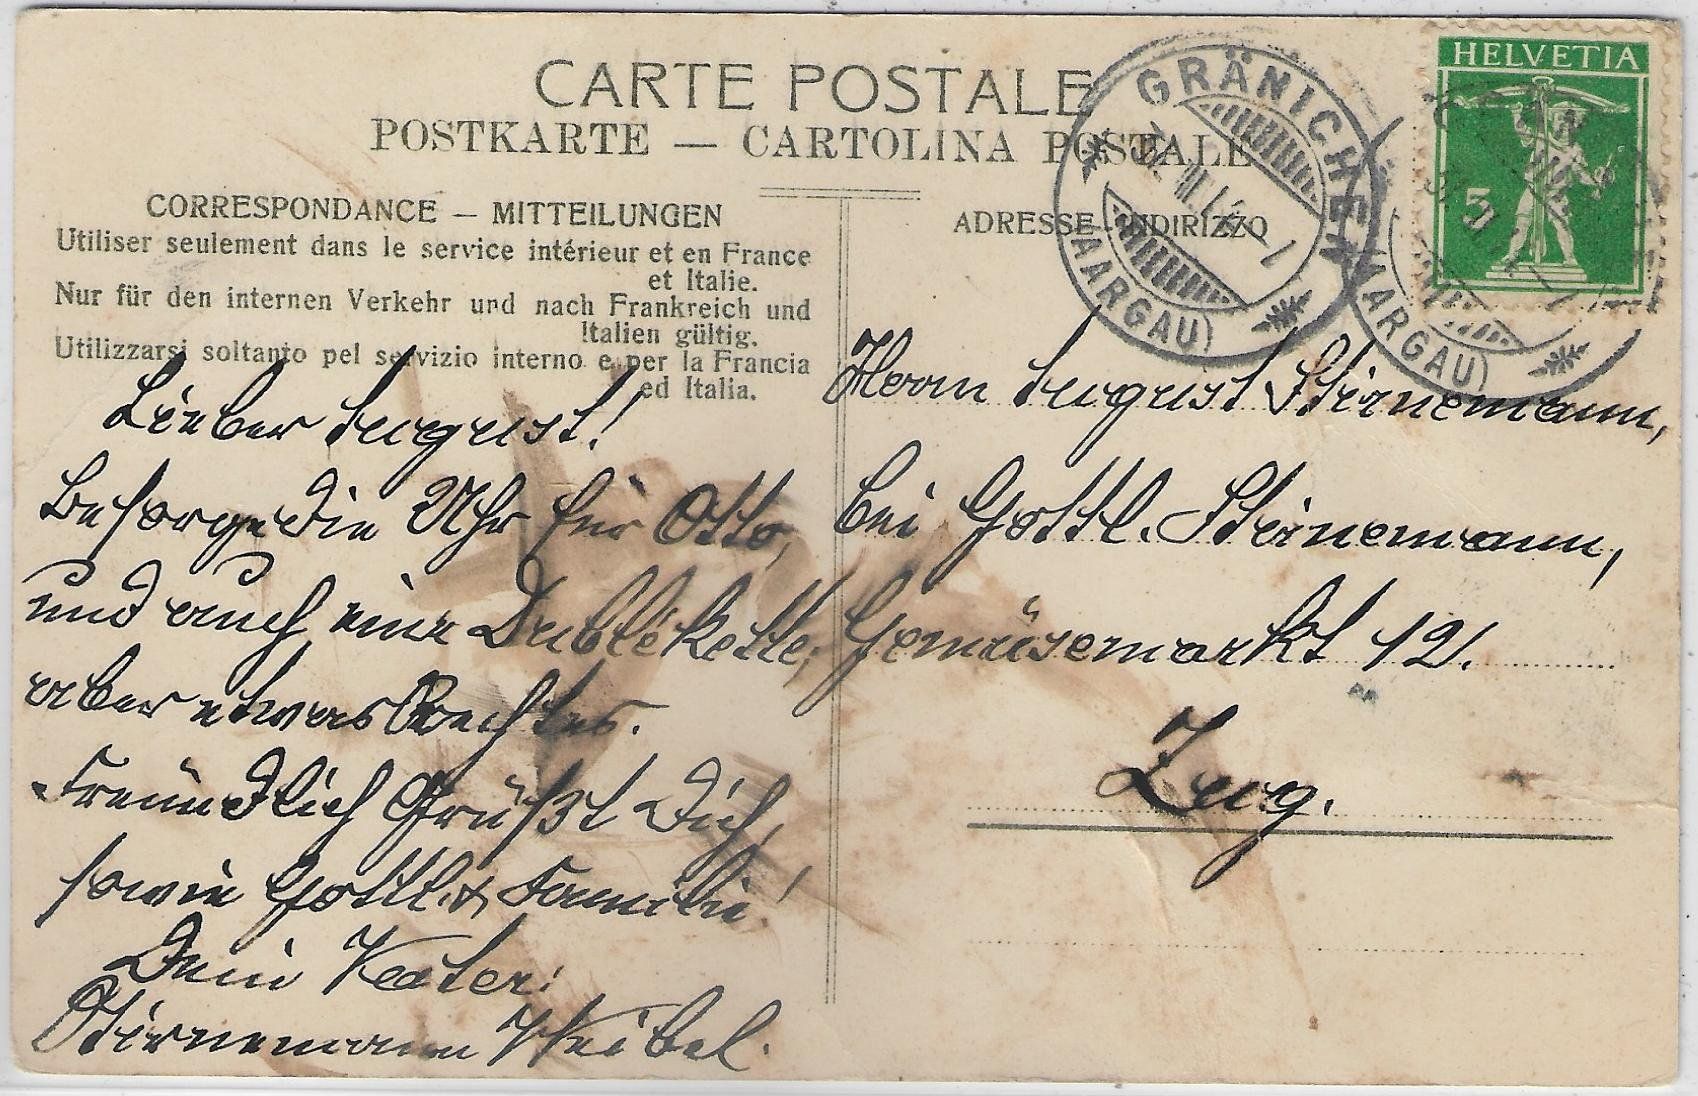 CARTE POSTALE
POSTKARTE — CARTOLINA POSTALE
CORRESPONDANCE — MITTEILUNGEN
Utiliser seulement dans le service intérieur et en France
et Italie.
Nur für den internen Verkehr und nach Frankreich und
Italien gültig.
Utilizzarsi soltanto pel servizio interno e per la Francia
ed Italia.
Lieber August!
Besorge die Uhr für Otto,
und auch eine Dublékette,
aber etwas Rechtes.
Freundlich Grüßt Dich,
sowie Gottl. & Familie!
Dein Vater:
Stirnemann Weibel.
ADRESSE - INDIRIZZO
Herrn August Stirnemann,
bei Gottl. Stirnemann,
Gemüsemarkt 12.
Zug.
GRÄNICHEN
(AARGAU)
HELVETIA
5
(AARGAU)